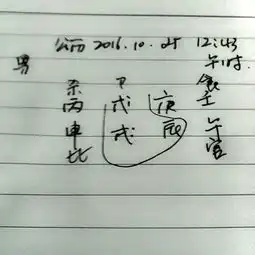 公历 2016.10.25 12:43
男 午时
杀 P 食
丙 戊 庚 壬
申 戌 辰 午
比 官